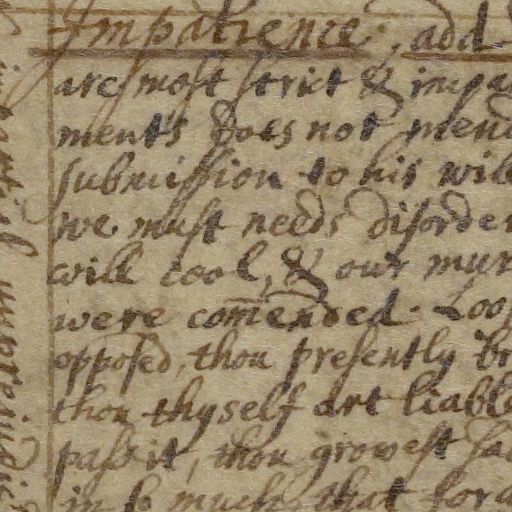 Impatience, add
are most strict & impa
ments does not mend
submission to his will
we must needs disorder
will cool, & our mur
were comended. Loo
opposed, thou presently br
thou thyself art liable
past it, thou growest sa
in so much that for